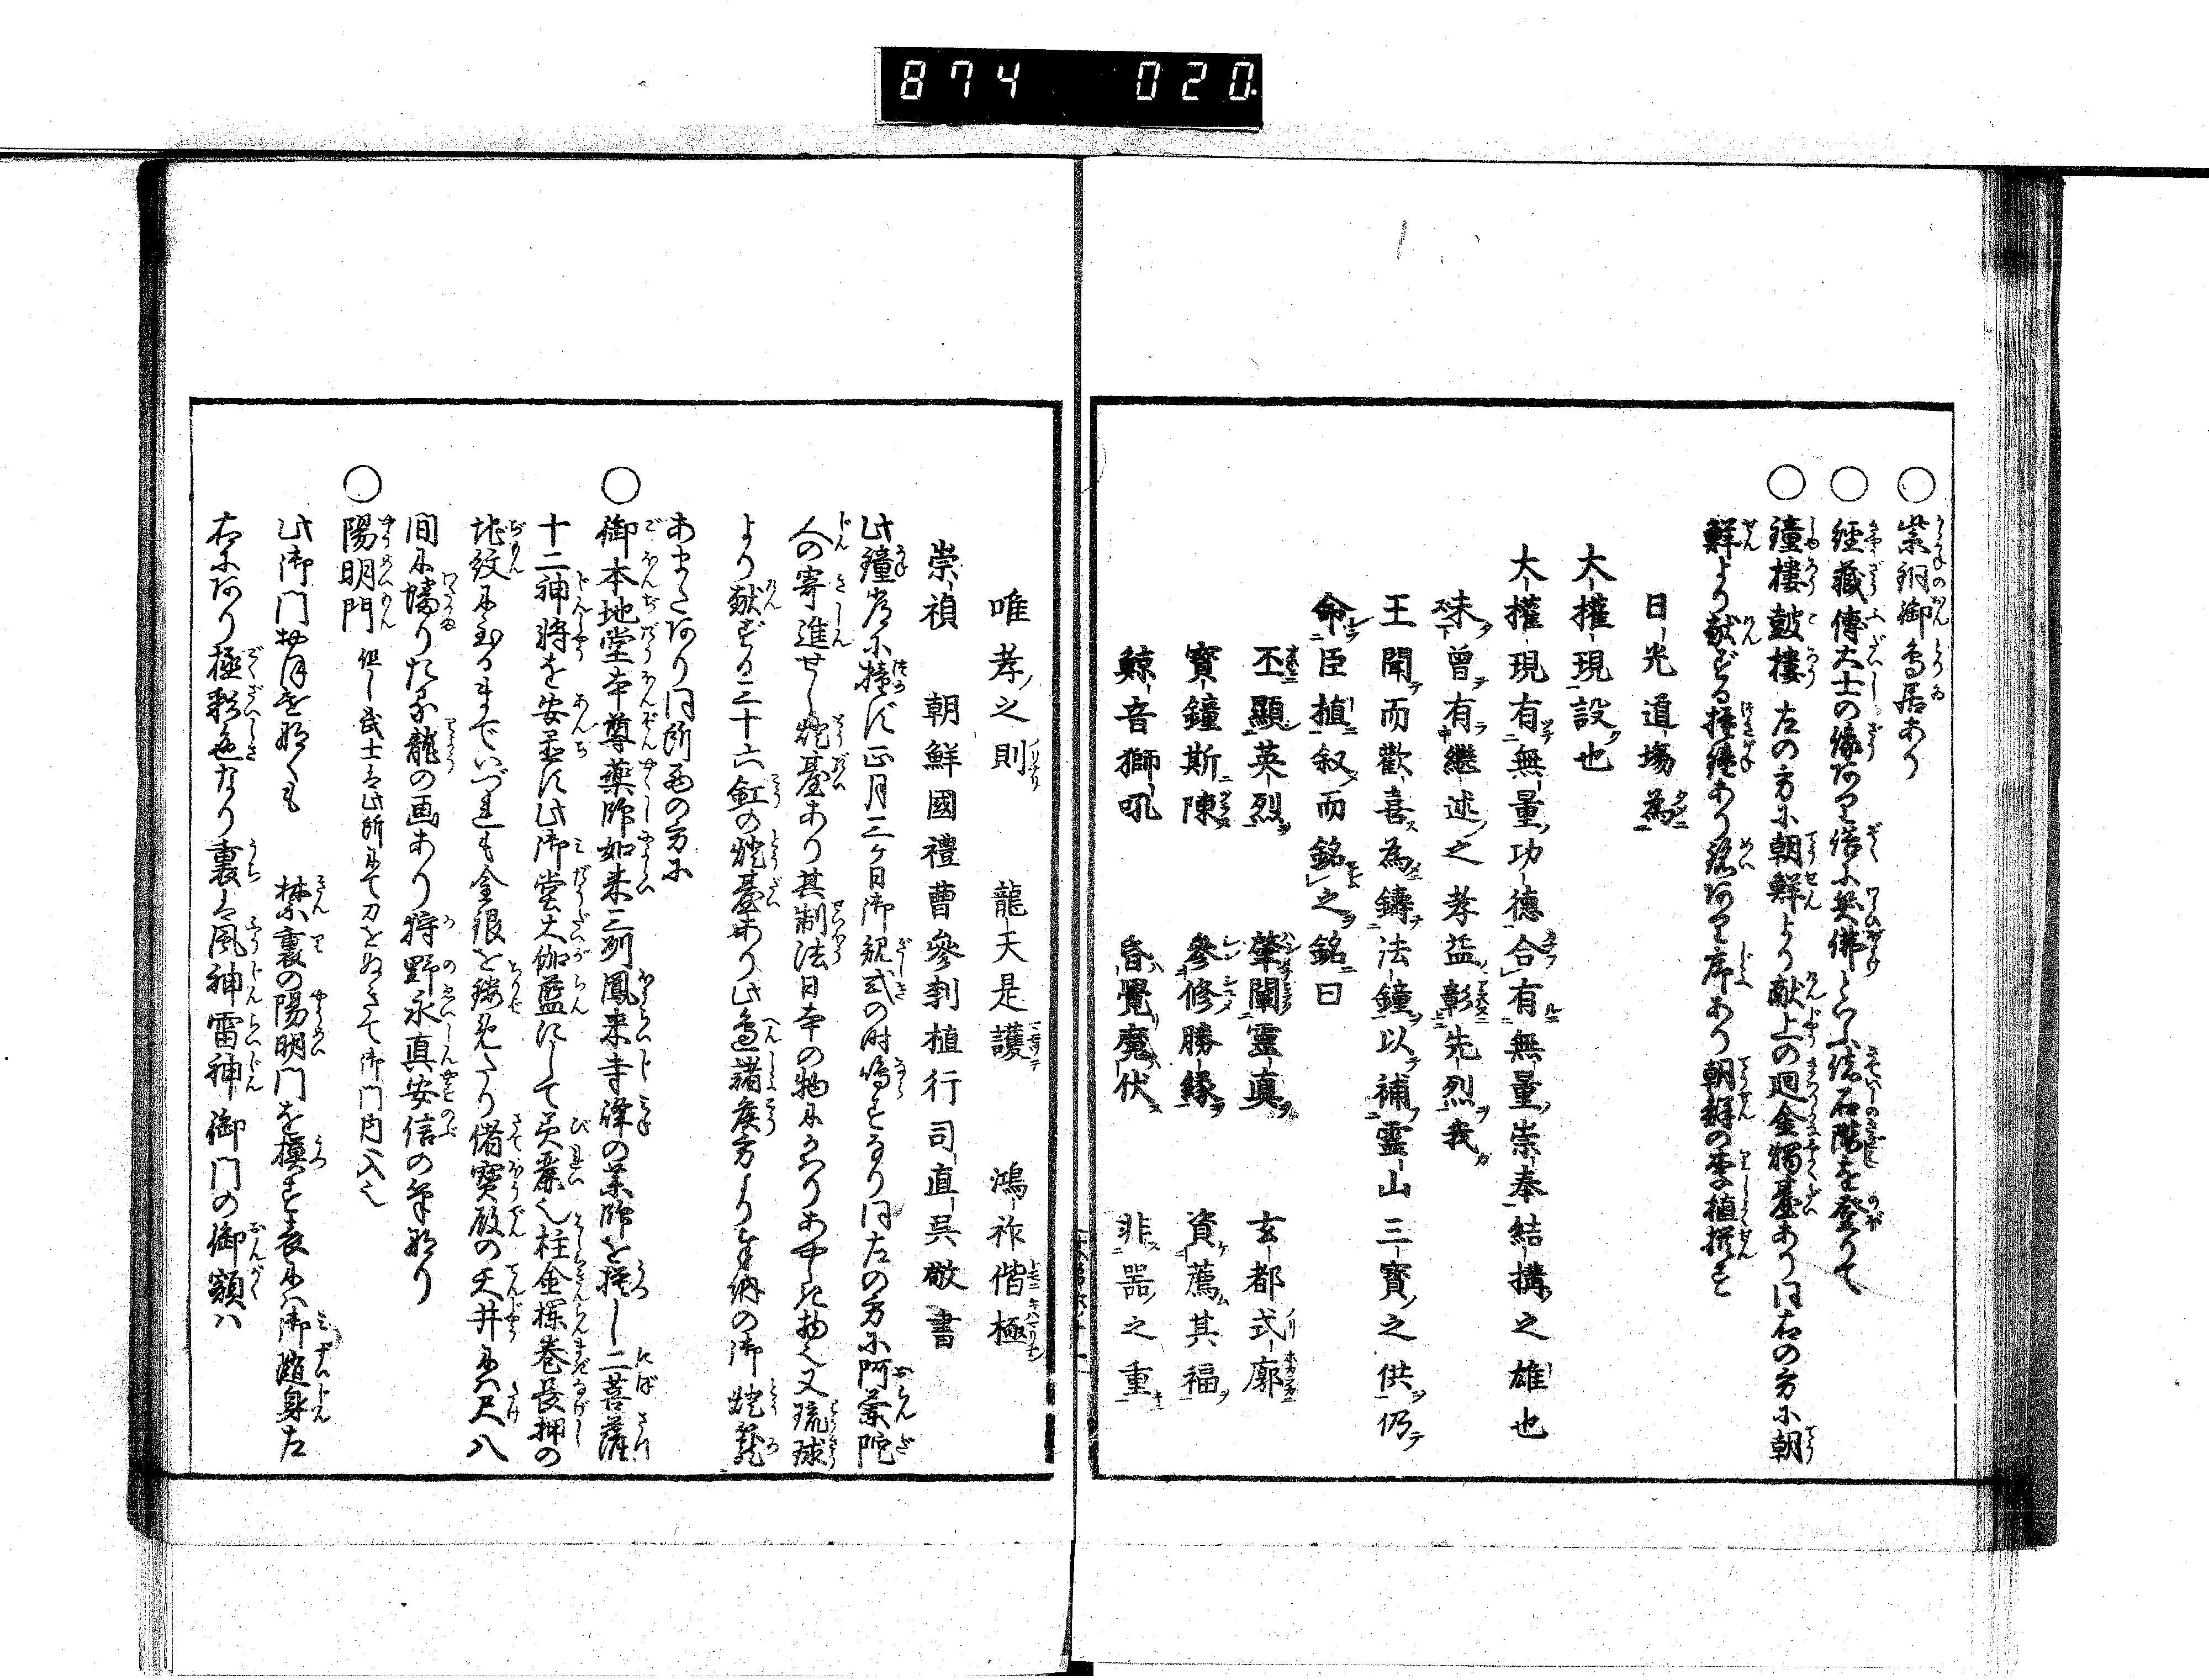 874 020
○ 紫銅御鳥居あり
○ 経藏傳大士の像あり俗に笑佛といふ結石階を登りて
○ 鐘樓鼓樓 左の方に朝鮮より献上の廻金燭臺あり同右の方に朝
鮮より献ずる撞鐘あり銘あり序あり朝鮮の李植撰す
日光道場為
大權現設也
大權現有無量功德合有無量崇奉結搆之雄也
未曾有継述之孝益彰先烈我
王聞而歡喜為鑄法鐘以補靈山三寳之供仍
命臣植叙而銘之銘曰
丕顯英烈 肇闡靈真 玄都式廓
寳鐘斯陳 參修勝縁 資薦其福
鯨音獅吼 昏覺魔伏 非噐之重
唯孝之則 龍天是護 鴻祚偕極
崇禎 朝鮮國禮曹參判植行司直呉敬書
此鐘常に撞ず正月三ヶ日御規式の時鳴すなり同左の方に阿蘭陀
人の寄進せし燈臺あり其制法日本の物にかはりあやしき物也又琉球
より献ずる三十六釭の燈臺あり此邊諸矦方より奉納の御燈籠
あまたあり同所西の方に
○ 御本地堂本尊薬師如来三刕鳳来寺峰の薬師を摸し二菩薩
十二神将を安置す此御堂大伽藍にして美麗也柱金襴巻長押の
地紋に至るまでいづれも金銀を鏤めたり偖寳殿の天井には尺八
間に幡りたる龍の画あり狩野永真安信の筆なり
○ 陽明門 但し武士は此所にて刀をぬきて御門内へ入也
此御門始は名なくも 禁裏の陽明門を摸す表には御随身左
右にあり極彩色なり裏は風神雷神御門の御額ハ